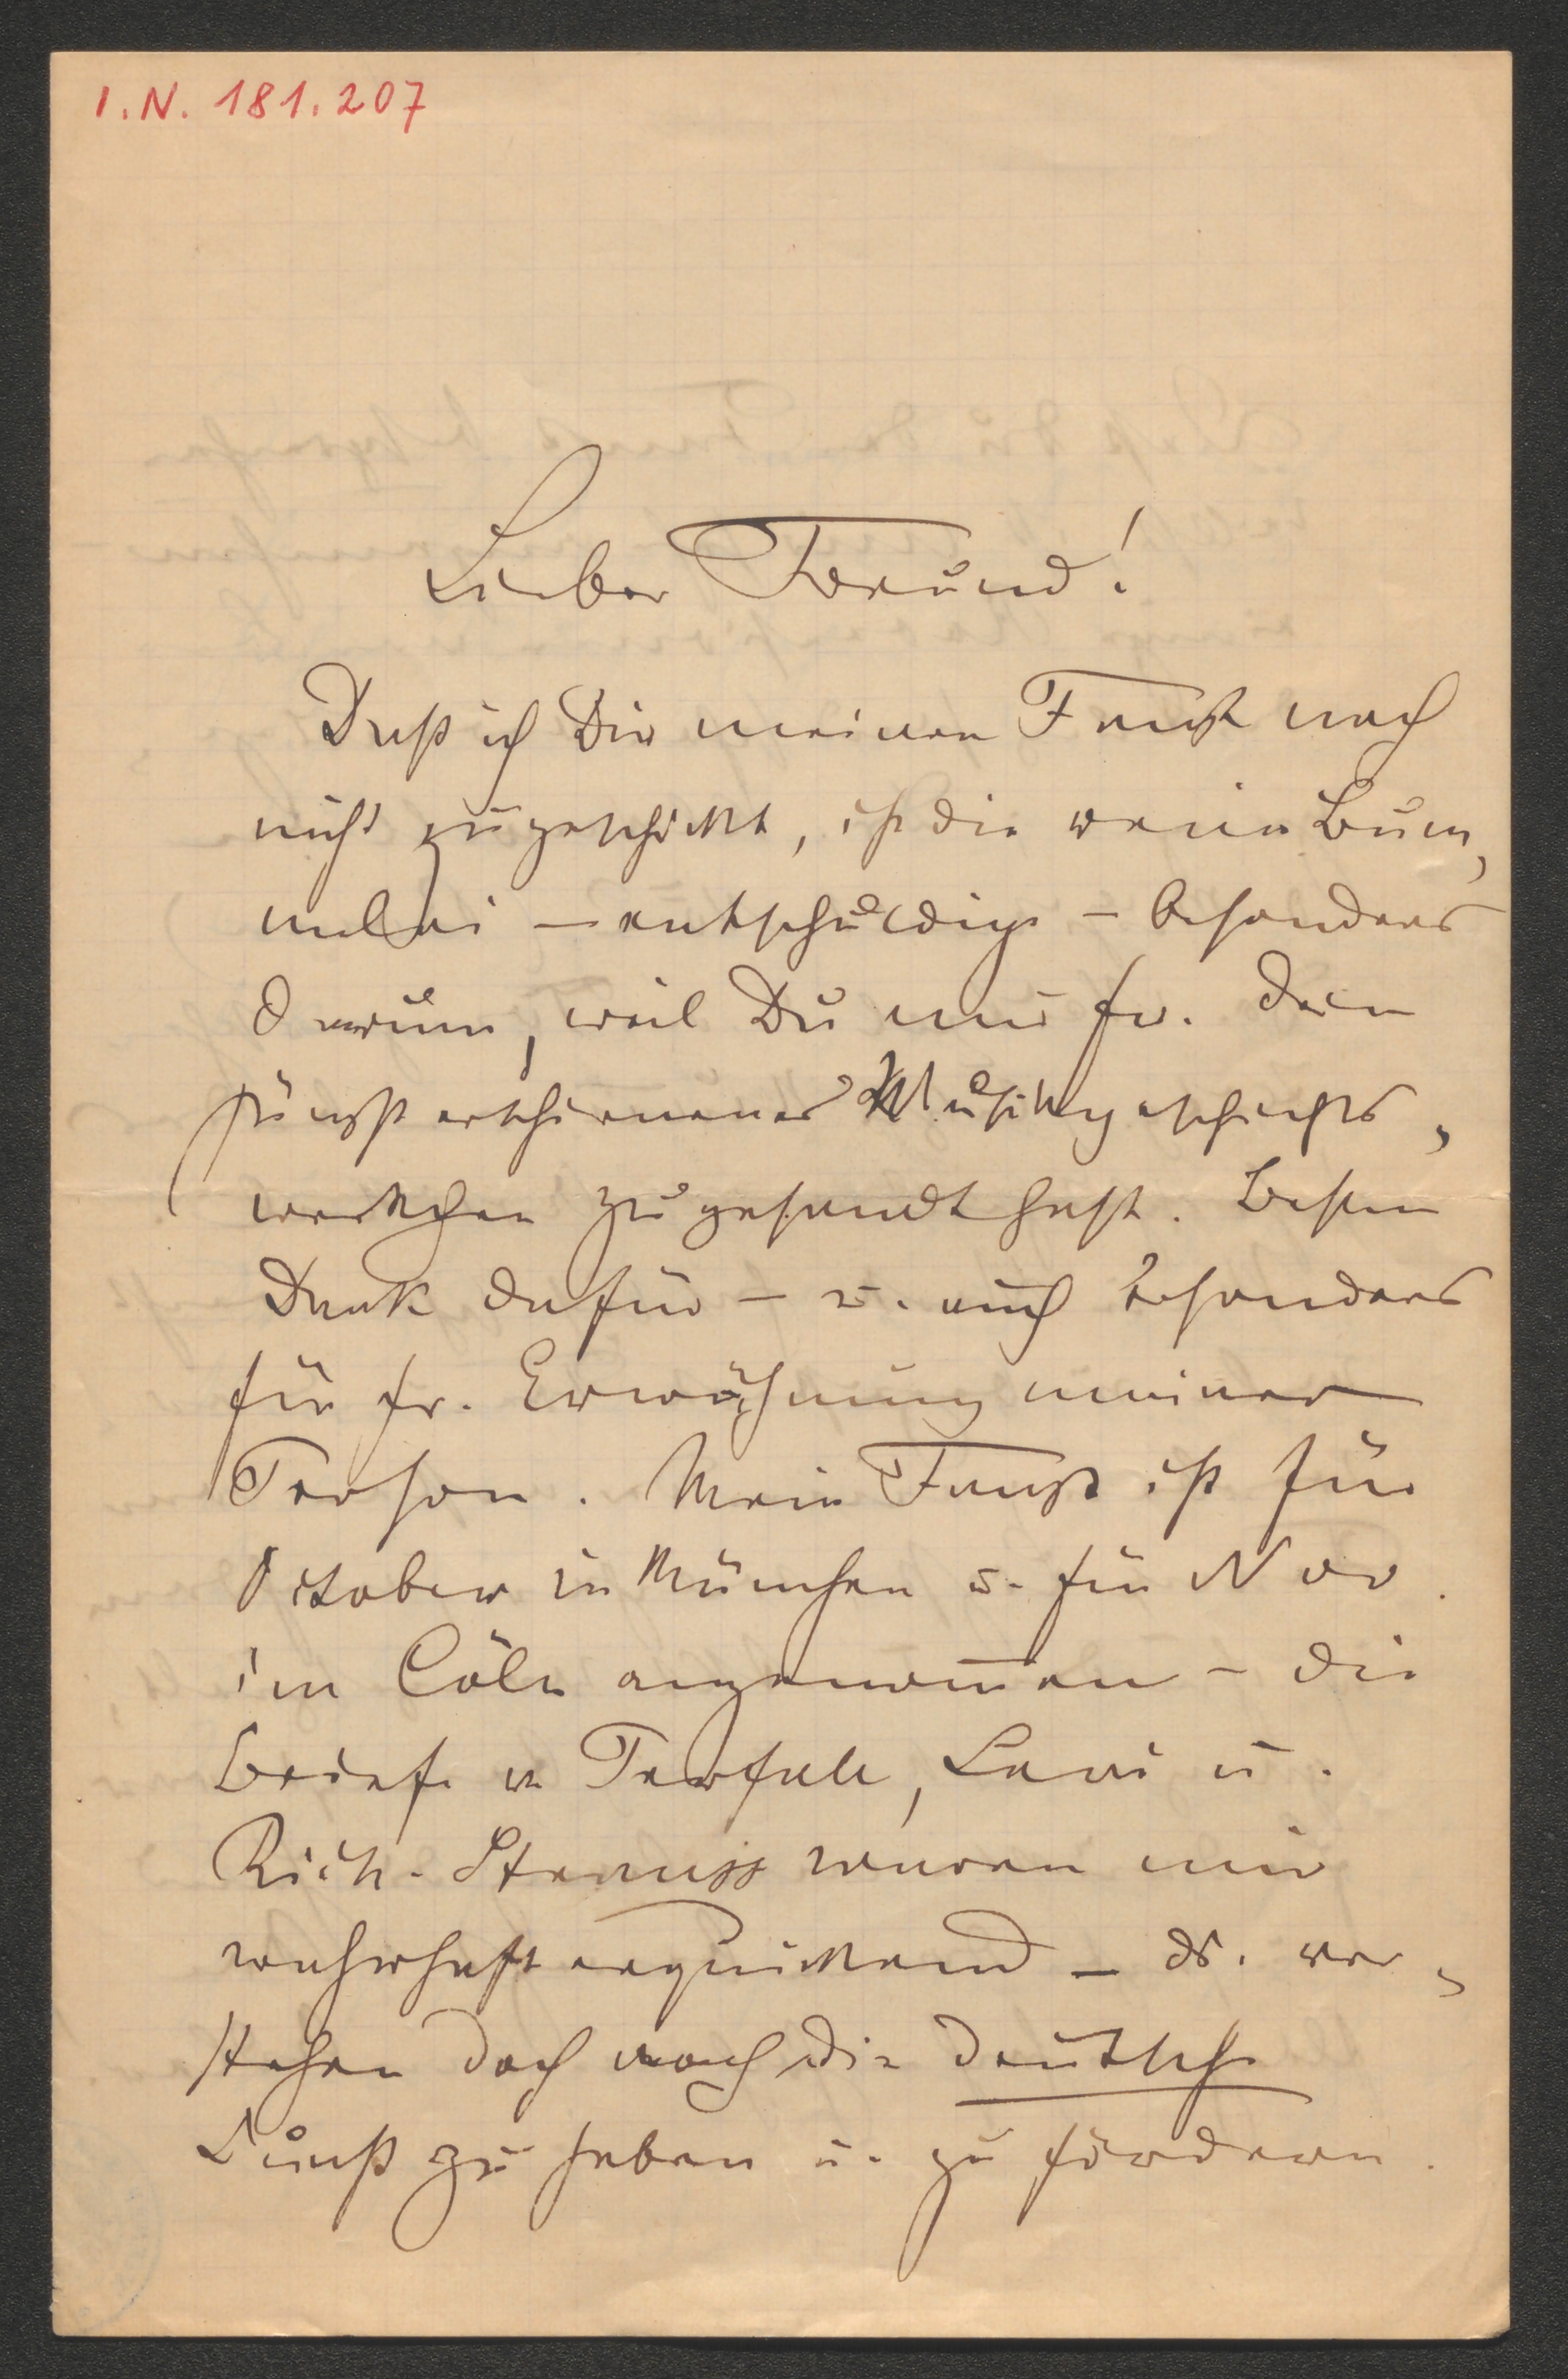 I.N. 181.207
Lieber Freund!
Daß ich Dir meinen Faust noch
nicht zugeschickt, ist die reine Bum,
melei – entschuldige – besonders
darum, weil Du mir fr. Dein
jüngst erschienenes Musikgeschichts,
werkchen zugesandt hast. Besten
Dank dafür – u. auch besonders
für fr. Erwähnung meiner
Person. Mein Faust ist für
October in München u. für Nov.
in Cöln angenom̄en – die
Briefe v. Perfall, Levi u.
Rich. Strauss waren mir
wahrhaft erquickend – ds. ver,
stehen doch noch die deutsche
Kunst zu heben u. zu fördern.